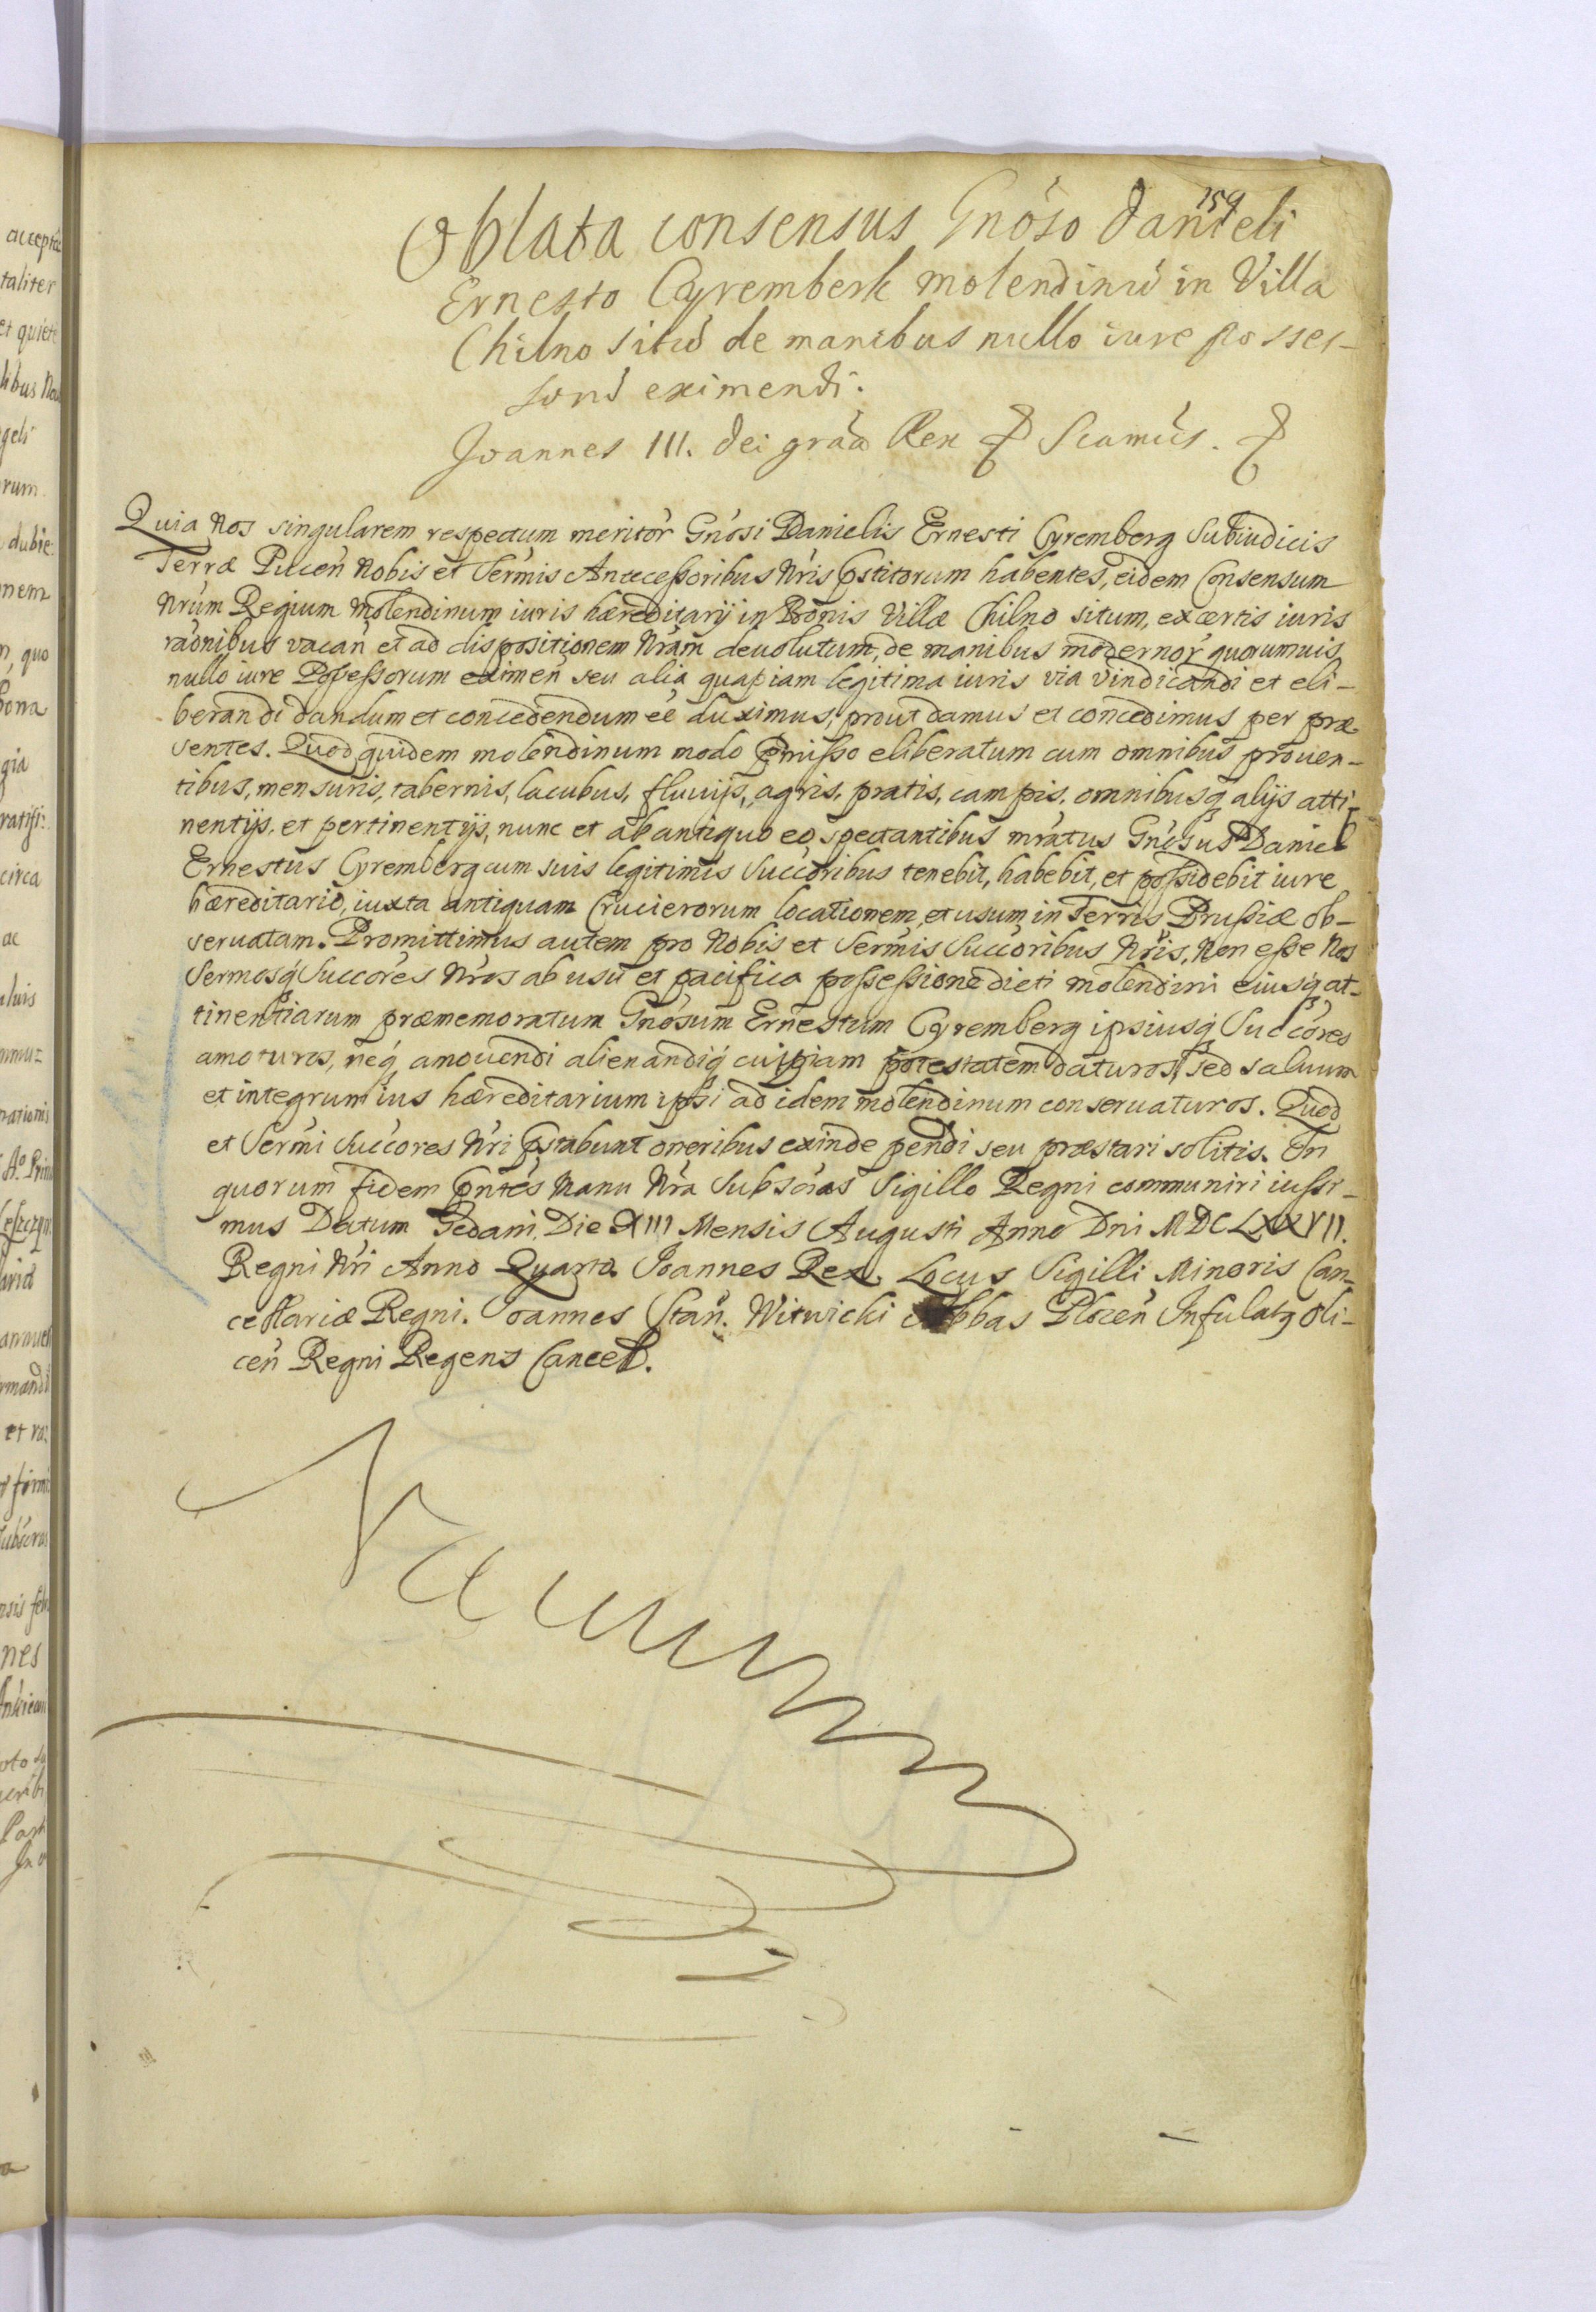 159
Oblata consensus Gnoso Danieli
Ernesto Cyremberk molendinū in Villa
Chilno sitū de manibus nullo iure posses-
sorū eximendi.
Joannes III. Dei grãa Rex
Quia Nos singularem respectum meritor Gnosi Danielis Ernesti Cyremberg Subiudicis
Terræ Pucen Nobis et Sermis Antecessoribus Nris pstitorum habentes, eidem Consensum
Nrum Regium molendinum iuris hæreditarij in Bonis Villæ Chilno situm, ex certis iuris
raonibus vacan et ad dispositionem Nram deuolutum, de manibus modernor quorumuis
nullo iure Possessorum eximen seu alia quapiam legitima iuris via vindicandi et eli-
berandi dandum et concedendum eē duximus, prout damus et concedimus per præ
sentes. Quod quidem molendinum modo pmisso eliberatum cum omnibus prouen-
tibus, mensuris, tabernis, lacubus, fluuijs, agris, pratis, campis, omnibusq alijs atti-
nentijs, et pertinentijs, nunc et ab antiquo eo spectantibus mratus Gnosus Daniel
Ernestus Cyremberg cum suis legitimis Succoribus tenebit, habebit, et possidebit iure
hæreditario, iuxta antiquam Crucierorum locationem, et usum in Terris Prussiæ ob-
seruatam. Promittimus autem pro Nobis et Sermis Succoribus Nris, Non esse Nos
Sermosq Succores Nros ab usu et pacifica possessione dicti molendini eiusq at-
tinentiarum præmemoratum Gnosum Ernestum Cyremberg ipsiusq Succores
amoturos, neq amouendi alienandiq cuipiam potestatem daturos, sed saluum
et integrum ius hæreditarium ipsi ad idem molendinum conseruaturos. Quod
et Sermi Succores Nri pstabunt oneribus exinde pendi seu præstari solitis. In
quorum fidem pntes Manu Nra Subscras Sigillo Regni communiri iussi-
mus Datum Gedani, Die XIII Mensis Augusti Anno Dni MDCLXXVII.
Regni Nri Anno Quarto. Joannes Rex. Locus Sigilli Minoris Can-
cellariæ Regni. Joannes Stan. Witwicki Abbas Plocen Infulatq Oli-
cen Regni Regens Cancell.